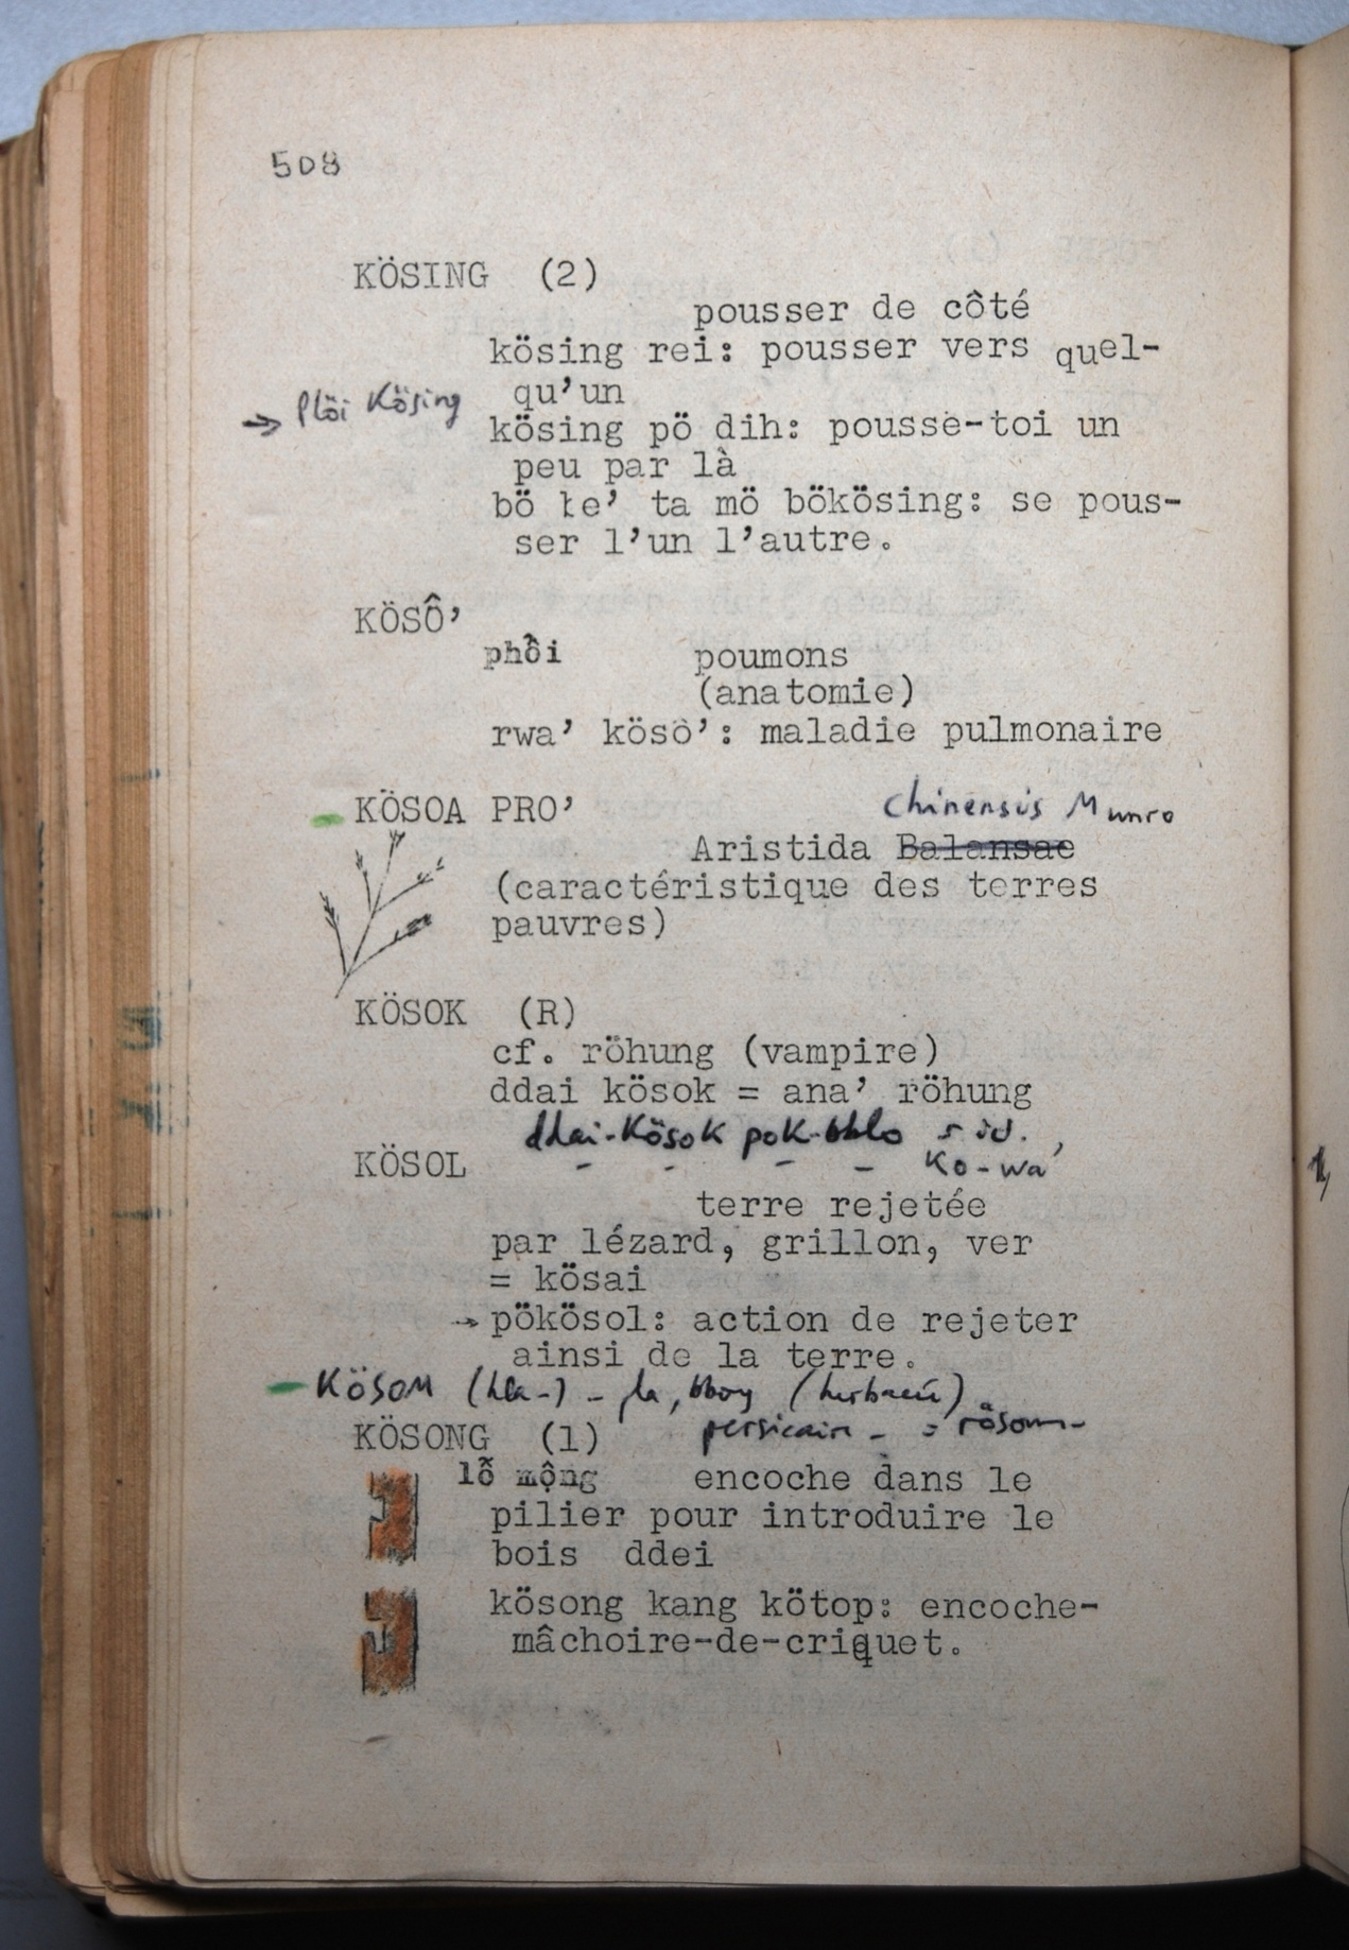 508
KÖSING (2)
pousser de côté
kösing rei: pousser vers quel-
qu'un
→ Plöi Kösing
kösing pö dih: pousse-toi un
peu par là
bö te' ta mö bökösing: se pous-
ser l'un l'autre.
KÖSÔ'
phồi poumons
(anatomie)
rwa' kösò': maladie pulmonaire
KÖSOA PRO' chinensis Munro
Aristida Balansae
(caractéristique des terres
pauvres)
KÖSOK (R)
cf. röhung (vampire)
ddai kösok = ana' röhung
ddai-Kösok pok-
KÖSOL Ko-wa'
terre rejetée
par lézard, grillon, ver
= kösai
→ pökösol: action de rejeter
ainsi de la terre.
KÖSOM
KÖSONG (1) = rösom-
lỗ mộng encoche dans le
pilier pour introduire le
bois ddei
kösong kang kötop: encoche-
mâchoire-de-criquet.